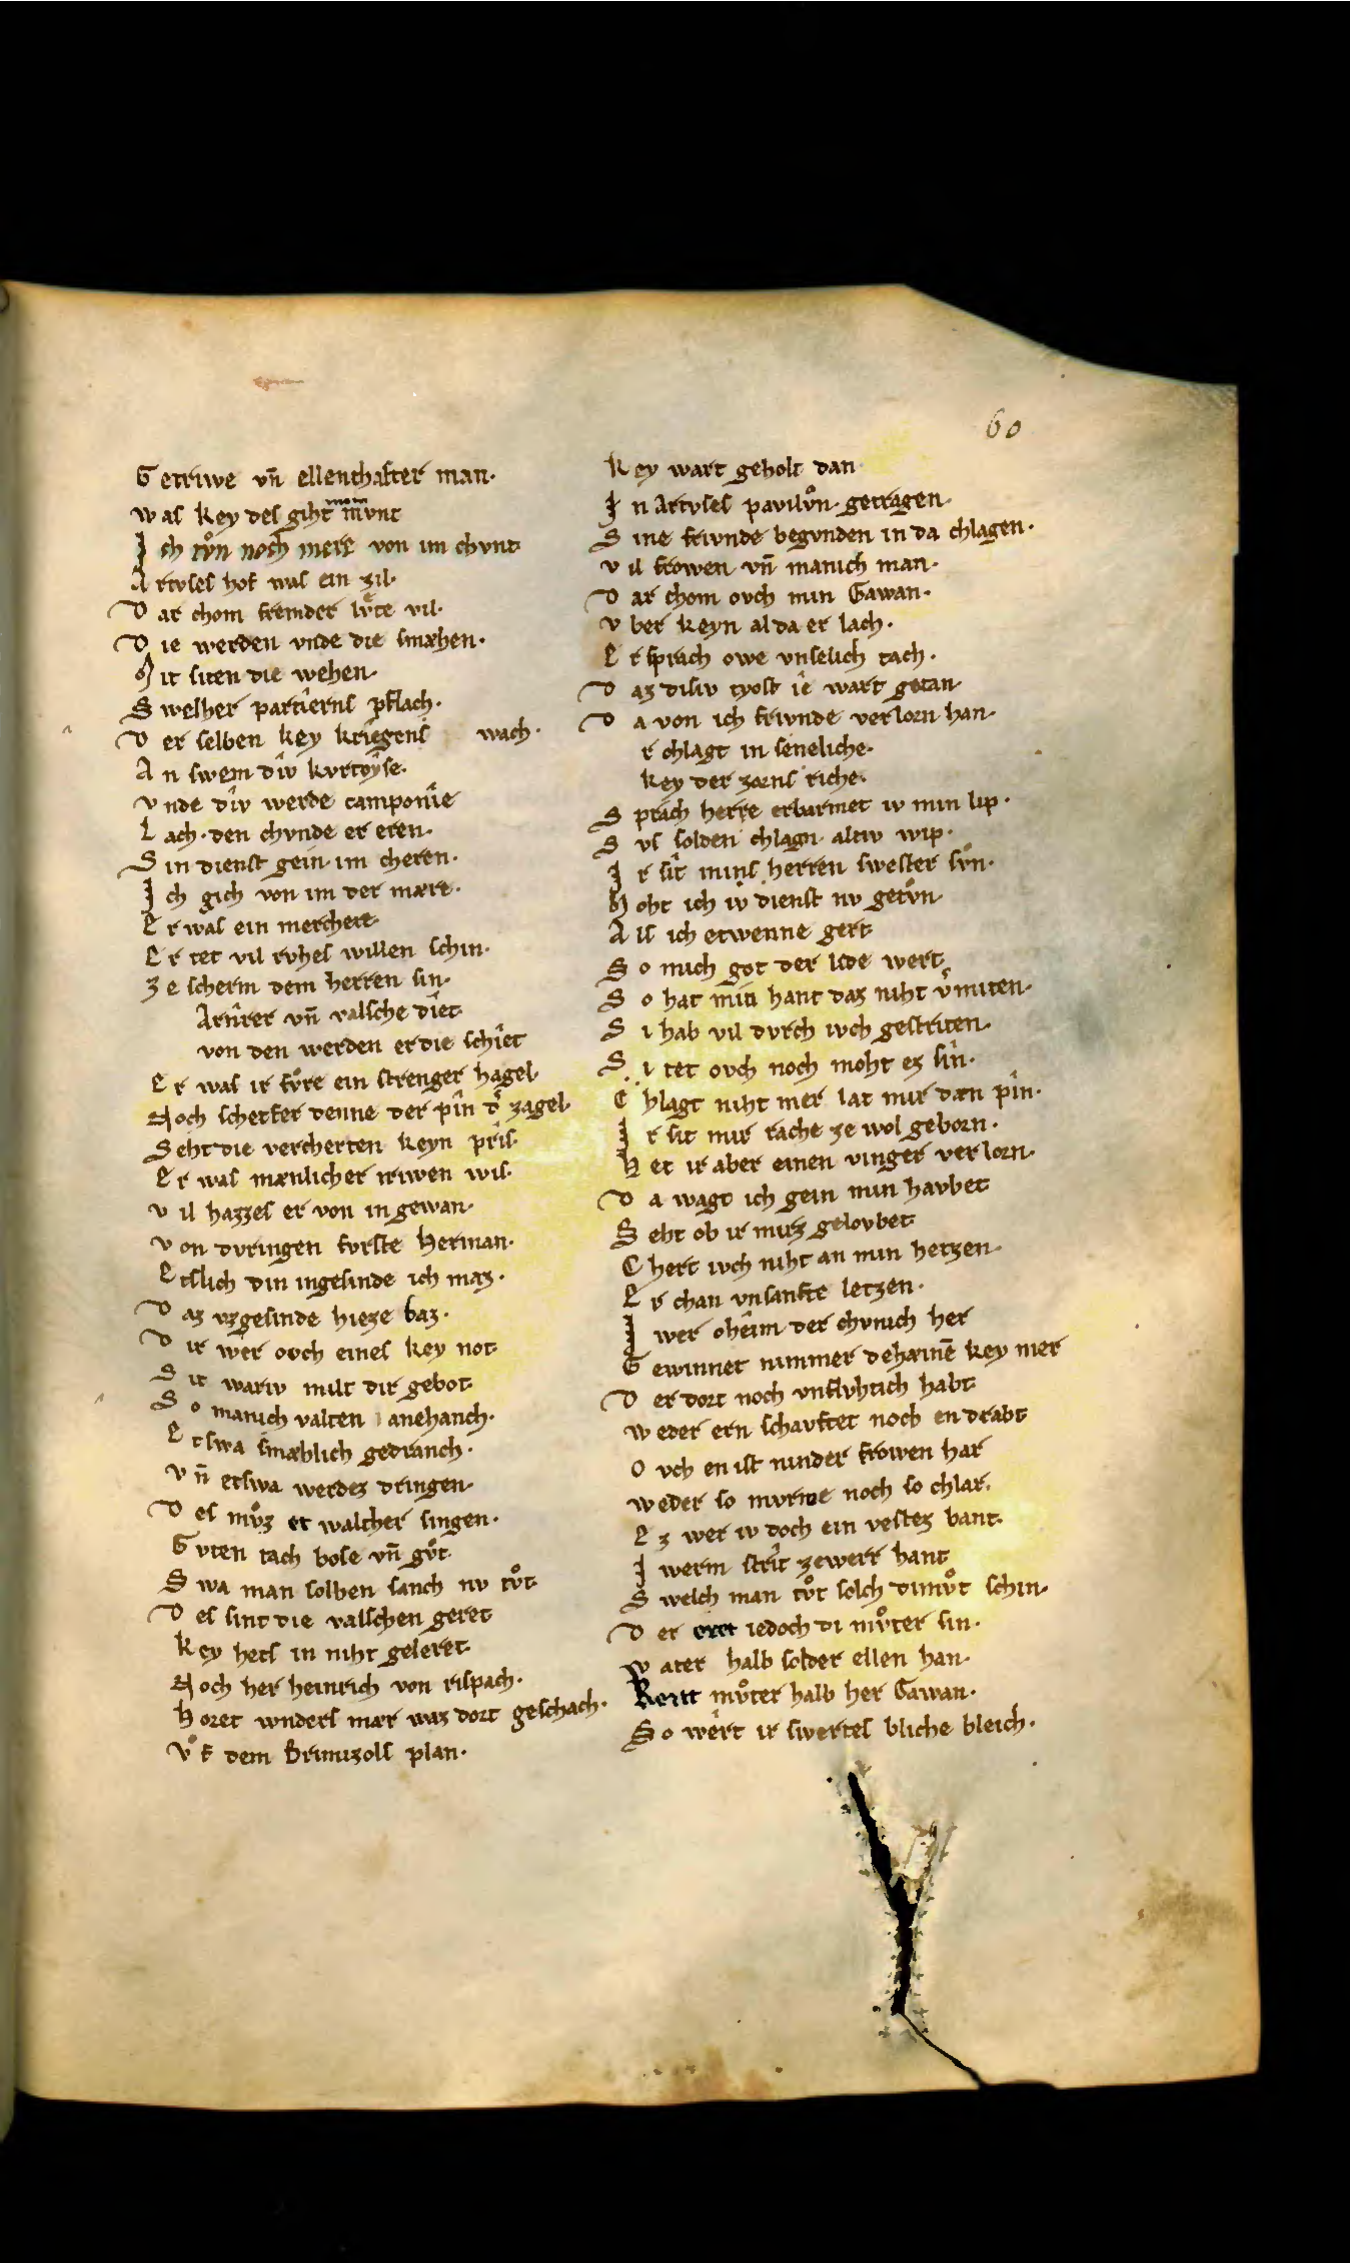 60
Getriwe vn̄ ellenthafter man·
was key des giht min mvnt
Ich tvͦn noch mere von im chvnt
Artvses hof was ein zil·
Dar chom fremder lvͤte vil·
Die werden vnde die smæhen·
Mit siten die wehen·
Swelher partîerns pflach·
Der selben key kriegens wach·
An swem dîv kvrtoŷse·
vnde dîv werde camponîe
Lach· den chvnde er eren·
Sin dienst gein im cheren·
Ich gich von im der mære·
Er was ein merchere·
Er tet vil rvhes willen schin·
ze scherm dem herren sin·
Artîrer vn̄ valsche dîet
von den werden er die schîet
Er was ir fvͦre ein strenger hagel·
Noch scherfer denne der pîn d͛ zagel·
Seht die vercherten keyn prîs·
Er was mænlicher triwen wis·
vil hazzes er von in gewan·
von dvringen fvrste herman·
Etslich din ingesinde ich maz·
Daz vzgesinde hieze baz·
Dir wer ovch eines key not·
Sit wariv milt dir gebot·
So manich valten anehanch·
Etswa smæhlich gedranch·
vn̄ etswa werdez dringen·
Des mvͦz er walther singen·
Gvten tach bose vn̄ gvͦt·
Swa man solhen sanch nv tvͦt·
Des sint die valschen geret
key hets in niht geleret·
Noch her heinrich von rispach·
horet wnders mær waz dort geschach·
vͦf dem brimizols plan·
key wart geholt dan
In Artvses pavilvͦn· getragen·
Sine frivnde begvnden in da chlagen·
vil frowen vn̄ manich man·
Dar chom ovch min Gawan·
vber keyn al da er lach·
Er sprach owe vnselich tach·
Daz disiv tyost îe wart getan·
Da von ich frivnde verlorn han·
r chlagt in seneliche·
key der zorns riche·
Sprach herre erbarmet iv min lip·
Svs solden chlagn altiv wip·
Ir sît mins herren swester svͦn·
Moht ich iv dienst nv getvͦn·
Als ich etwenne gert
So mich got der lide wert
So hat min hant daz niht v͛miten·
Si hab vil dvrch ivch gestriten·
Si tet ovch noch moht ez sîn·
Chlagt niht mer lat mir den pîn·
Ir sit mir rache ze wol geborn·
Het ir aber einen vinger verlorn·
Da wagt ich gein min havbet
Seht ob ir mirz gelovbet
Chert ivch niht an min hetzen·
Er chan vnsanfte letzen·
I wer ohêim der chvnich her
Gewinnet nimmer dehæinē key mer
Der dort noch vnflvhtich habt
weder ern schavftet noch en drabt
Ovch en ist ninder frowen har
weder so mvrwe noch so chlar·
Ez wer iv doch ein vestez bant·
Iwerm strît ze werr hant
Swelch man tvͦt solch dimvͦt schin·
Der eret iedoch di mvͦter sin·
vater halb solder ellen han·
Kert mvͦter halb her Gawan·
So wêrt ir swertes bliche bleich·